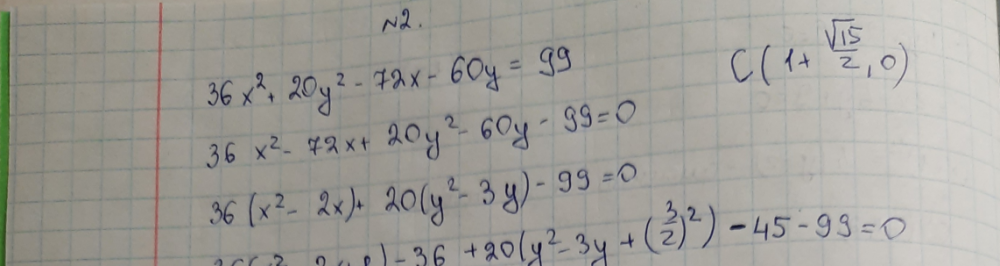 №2.
36x² + 20y² - 72x - 60y = 99
C(1 + √15/2, 0)
36x² - 72x + 20y² - 60y - 99 = 0
36(x² - 2x) + 20(y² - 3y) - 99 = 0
) - 36 + 20(y² - 3y + (3/2)²) - 45 - 99 = 0